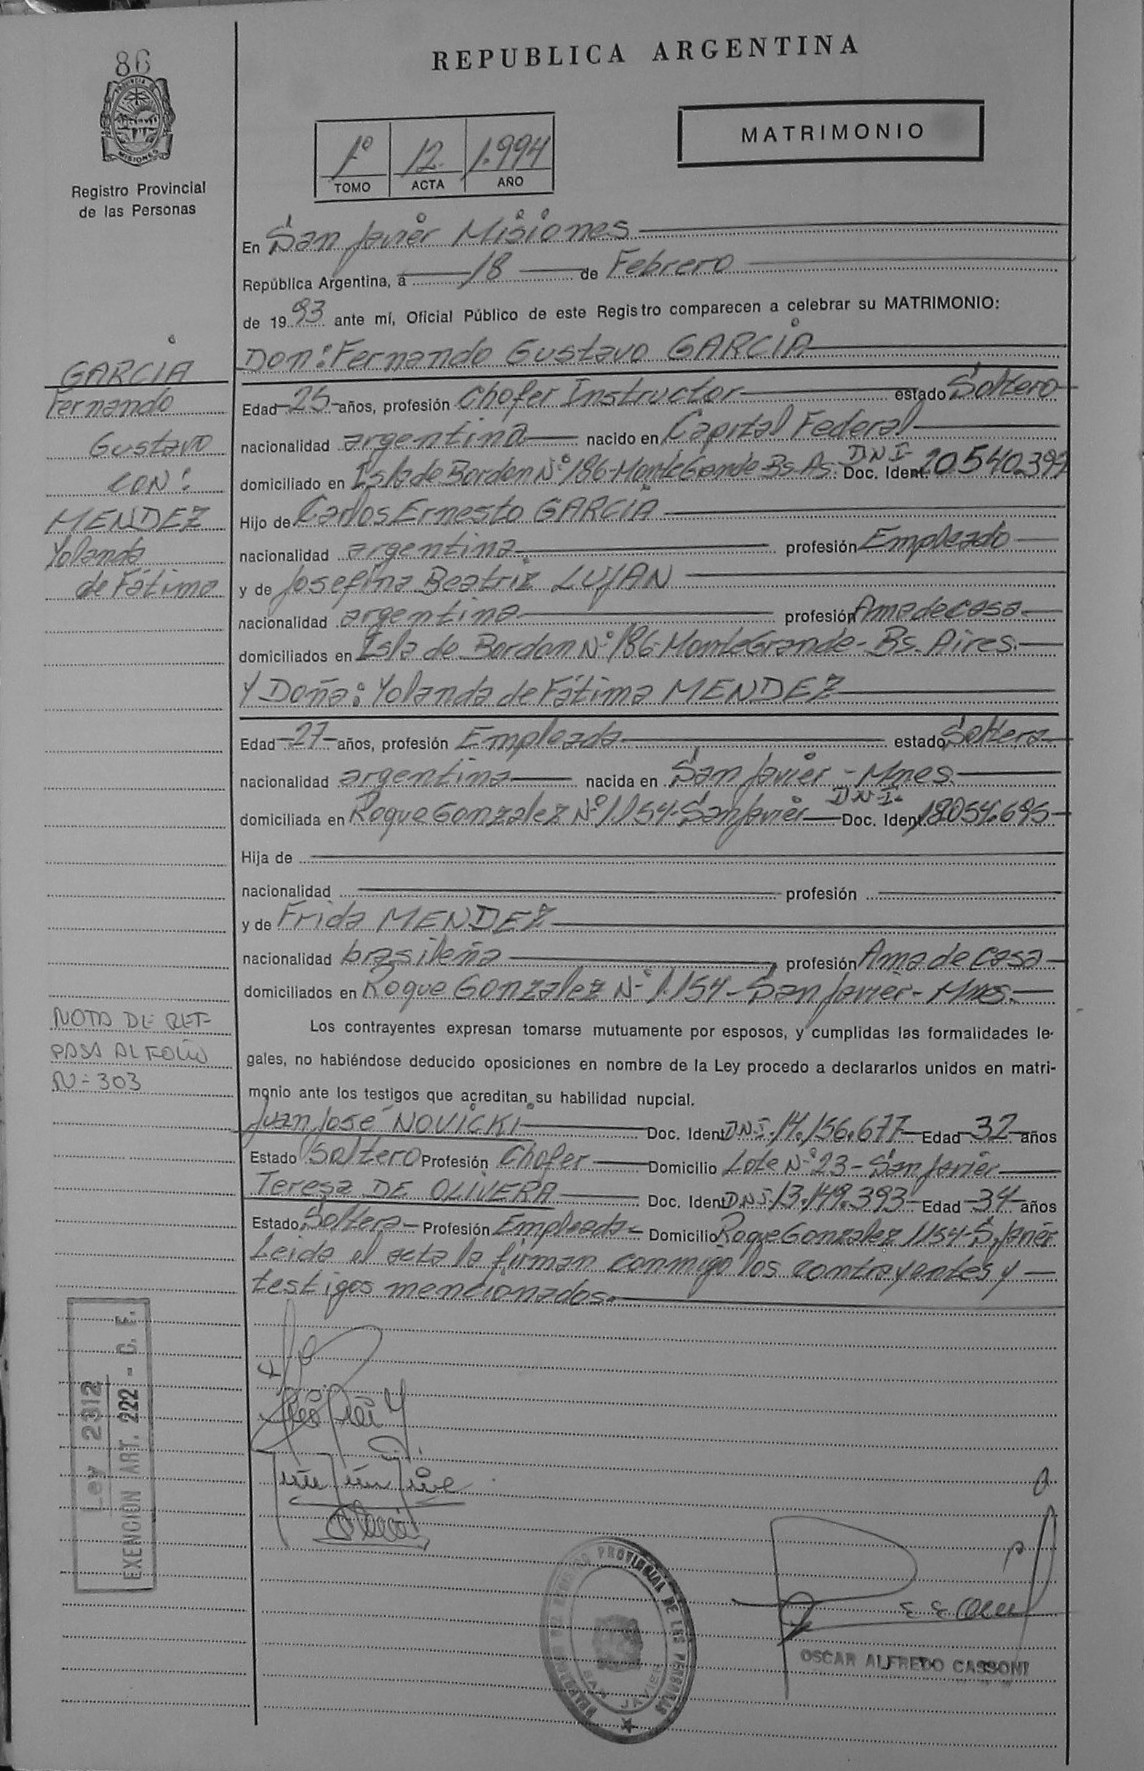 86
REPUBLICA ARGENTINA
PROVINCIA DE MISIONES
Registro Provincial
de las Personas
1º 12. 1.994
TOMO ACTA AÑO
MATRIMONIO
En San Javier Misiones
República Argentina, a 18 de Febrero
de 1993 ante mí, Oficial Público de este Registro comparecen a celebrar su MATRIMONIO:
Don: Fernando Gustavo GARCIA
Edad 25 años, profesión Chofer Instructor estado Soltero
nacionalidad argentina nacido en Capital Federal
domiciliado en Isla de Bordon Nº 186-Monte Grande-Bs. As. Doc. Ident. D.N.I. 20.540.397
Hijo de Carlos Ernesto GARCIA
nacionalidad argentina profesión Empleado
y de Josefina Beatriz LUJAN
nacionalidad argentina profesión Ama de casa
domiciliados en Isla de Bordon Nº 186-Monte Grande-Bs. Aires.
Y Doña: Yolanda de Fátima MENDEZ
Edad 27 años, profesión Empleada estado Soltera
nacionalidad argentina nacida en San Javier - Mnes.
domiciliada en Roque Gonzalez Nº 1154-San Javier Doc. Ident. D.N.I. 18.054.695
Hija de
nacionalidad profesión
y de Frida MENDEZ
nacionalidad brasileña profesión Ama de casa
domiciliados en Roque Gonzalez Nº 1.154-San Javier-Mnes.
Los contrayentes expresan tomarse mutuamente por esposos, y cumplidas las formalidades le-
gales, no habiéndose deducido oposiciones en nombre de la Ley procedo a declararlos unidos en matri-
monio ante los testigos que acreditan su habilidad nupcial.
Juan José NOVICKI Doc. Ident. D.N.I. 14.156.677 Edad 32 años
Estado Soltero Profesión Chofer Domicilio Lote Nº 23-San Javier
Teresa DE OLIVERA Doc. Ident. D.N.I. 13.149.393 Edad 34 años
Estado Soltera Profesión Empleada Domicilio Roque Gonzalez 1154-S. Javier
Leida el acta la firman conmigo los contrayentes y
testigos mencionados.
GARCIA
Fernando
Gustavo
CON:
MENDEZ
Yolanda
de Fátima
NOTA DE RET-
PASA AL FOLIO
Nº 303
Ley 2312
EXENCION ART. 222 - C. F.
REGISTRO PROVINCIAL DE LAS PERSONAS
SAN JAVIER
OSCAR ALFREDO CASSONI